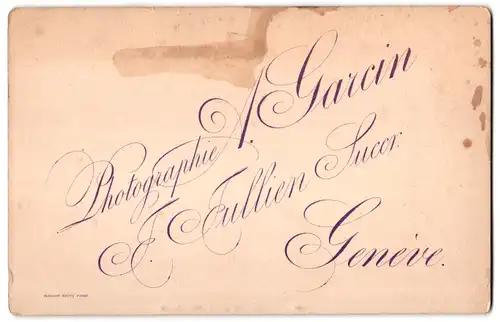 Photographie A. Garcin
F. Jullien Succr.
Genève.